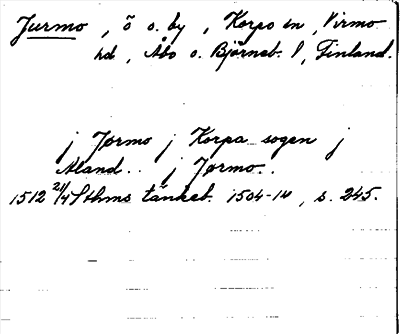 Jurmo, ö o. by, Korpo sn, Virmo
hd, Åbo o. Björneb. l, Finland.
j Jormo j Korpa sogen j
Aland.. j Jormo..
1512 21/4 Sthms tänkeb. 1504-14, s. 245.